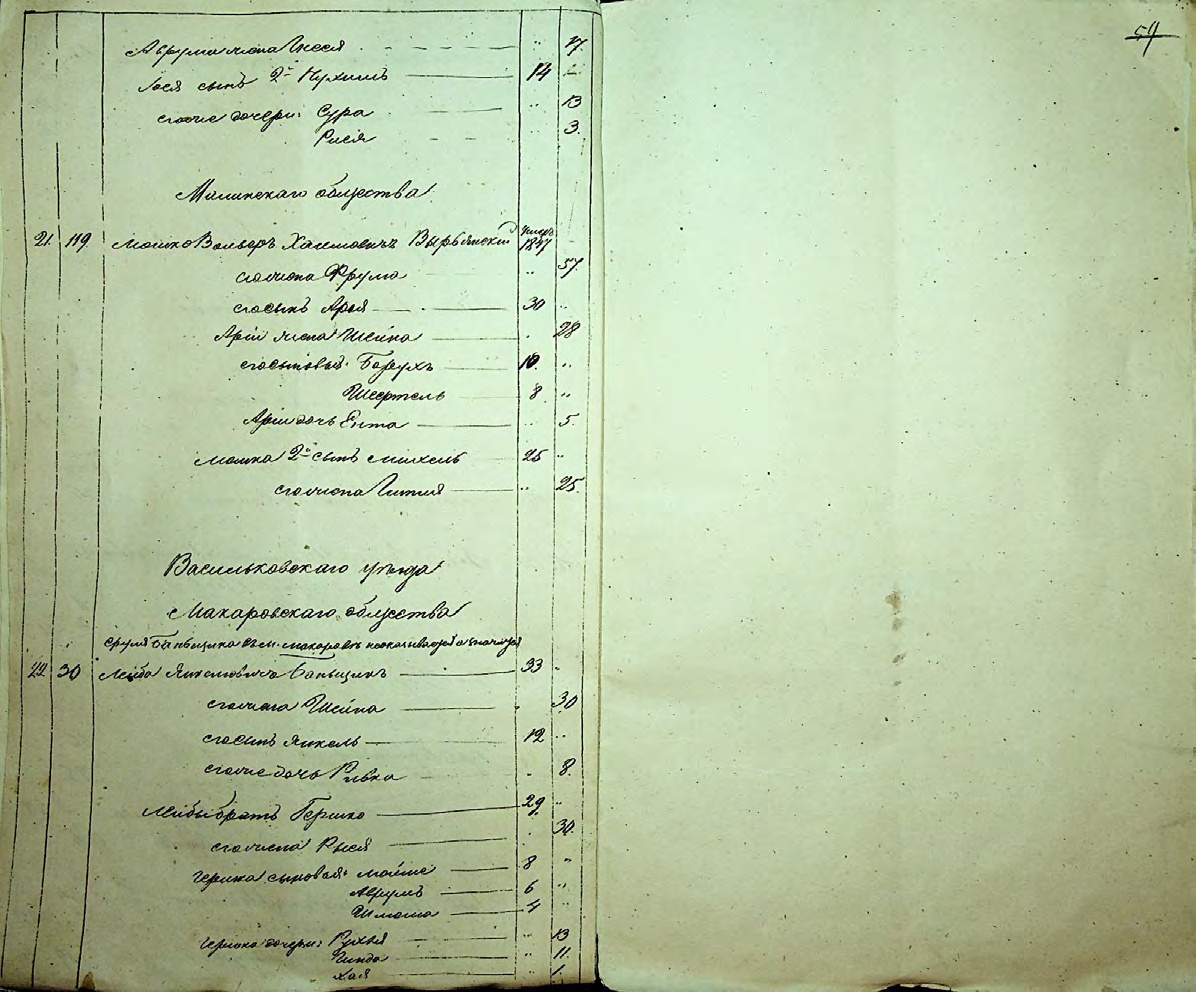 54
Аврума жена Чеся " 17.
Іося сынъ 2й Нухимъ 14 "
его же дочери: Сура " 13
Рися 3.
Малинскаго общества
21. 119. Мошко Вольворъ Хаимовичъ умеръ 1847
его жена Фрума " 57.
его сынъ Арья 30 "
Арiи жена Шейна 28
его сыновья: Борухъ 10. "
Шефтель 8 "
Арiи дочь Ента " 5.
Мошка 2й сынъ Михель 25 "
его жена Гитля " 25.
Васильковскаго уѣзда
Макаровскаго общества
22 30 Лейба Янкелевичъ 33 "
его жена Шейна " 30
его сынъ Янкель 12 "
его же дочь Ривка " 8.
Лейбы братъ Гершко 29. "
его жена Рыся " 30.
Гершка сыновья: Мойше 8 "
Аврумъ 6 "
Шлома 4 "
Гершка дочери: Рухля " 13
Гинда " 11.
Хая " 1.